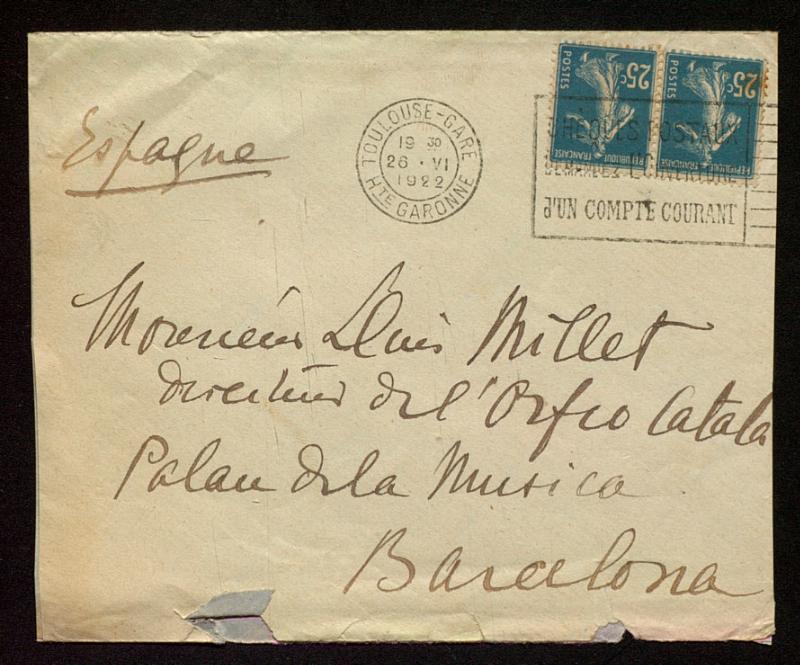 25c 25c
POSTES POSTES
REPUBLIQUE FRANÇAISE REPUBLIQUE FRANÇAISE
TOULOUSE-GARE
19 30
26 · VI
1922
HTE GARONNE
CHEQUES POSTAUX
DEMANDEZ L'OUVERTURE
d'UN COMPTE COURANT
Espagne
Monsieur Lluis Millet
directeur de l'Orfeo Catala
Palau de la Musica
Barcelona